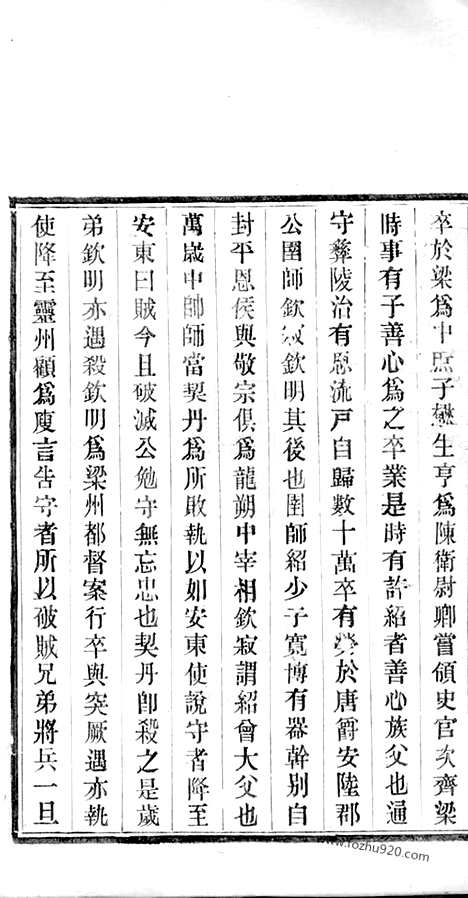 卒於梁爲中庶子懋生亨爲陳衛尉卿嘗領史官次齊梁
時事有子善心爲之卒業是時有許紹者善心族父也通
守彝陵治有恩流戸自歸數十萬卒有勞於唐爵安陸郡
公圉師欽寂欽明其後也圉師紹少子寛博有器幹别自
封平恩侯與敬宗俱爲龍朔中宰相欽寂謂紹曾大父也
萬歳中帥師當契丹爲所敗執以如安東使說守者降至
安東曰賊今且破滅公勉守無忘忠也契丹卽殺之是歲
弟欽明亦遇殺欽明爲梁州都督案行卒與突厥遇亦執
使降至靈州顧爲廋言告守者所以破賊兄弟將兵一旦
www.rozhu920.com